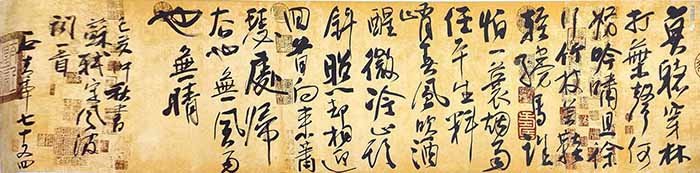 莫聽穿林
打葉聲何
妨吟嘯且徐
行竹杖芒鞋
輕勝馬誰
怕一蓑烟雨
任平生料
峭春風吹酒
醒微冷山頭
斜照却相迎
回首向来蕭
瑟處歸
去也無風雨
也無晴
己亥仲秋書
蘇軾定風波
詞一首
七十又四